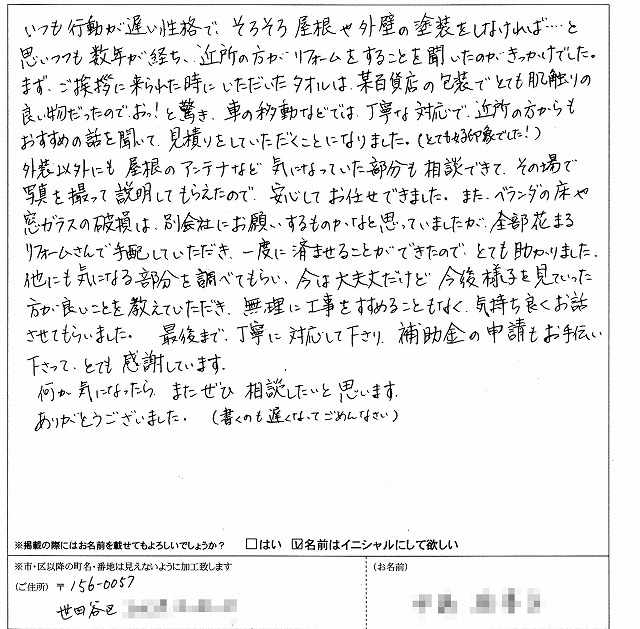 いつも行動が遅い性格で、そろそろ屋根や外壁の塗装をしなければ…と
思いつつも数年が経ち、近所の方がリフォームをすることを聞いたのがきっかけでした。
まず、ご挨拶に来られた時にいただいたタオルは、某百貨店の包装でとても肌触りの
良い物だったのでおっ!と驚き、車の移動などでは、丁寧な対応で、近所の方からも
おすすめの話を聞いて、見積りをしていただくことになりました。(とても好印象でした!)
外装以外にも屋根のアンテナなど気になっていた部分も相談できて、その場で
写真を撮って説明してもらえたので、安心してお任せできました。また、ベランダの床や
窓ガラスの破損は、別会社にお願いするものかなと思っていましたが、全部花まる
リフォームさんで手配していただき、一度に済ませることができたので、とても助かりました。
他にも気になる部分を調べてもらい、今は大丈夫だけど今後様子を見ていった
方が良いことを教えていただき、無理に工事をすすめることもなく、気持ち良くお話
させてもらいました。 最後まで、丁寧に対応して下さり、補助金の申請もお手伝い
下さって、とても感謝しています。
何か気になったら、またぜひ相談したいと思います。
ありがとうございました。(書くのも遅くなってごめんなさい)
※掲載の際にはお名前を載せてもよろしいでしょうか? □はい ☑名前はイニシャルにして欲しい
※市・区以降の町名・番地は見えないように加工致します
(ご住所) 〒156-0057
世田谷区
(お名前)